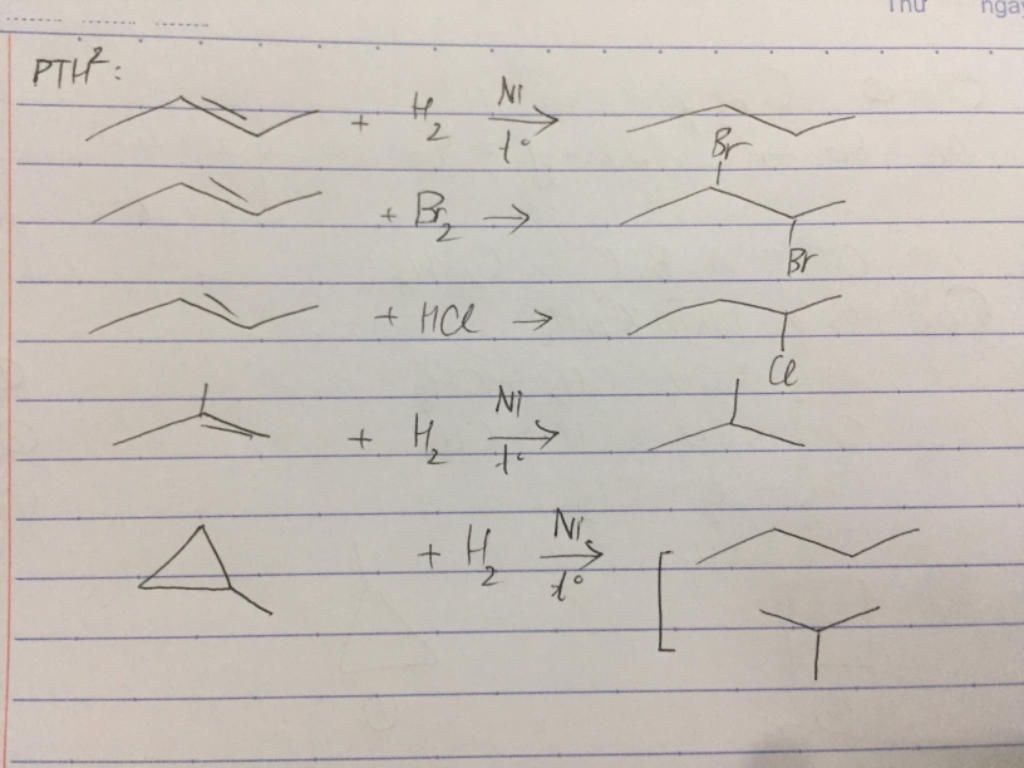 Thứ ngày
PTH²:
+ H₂ Ni t° →
Br
+ Br₂ →
Br
+ HCl →
Cl
+ H₂ Ni t° →
+ H₂ Ni, t° →